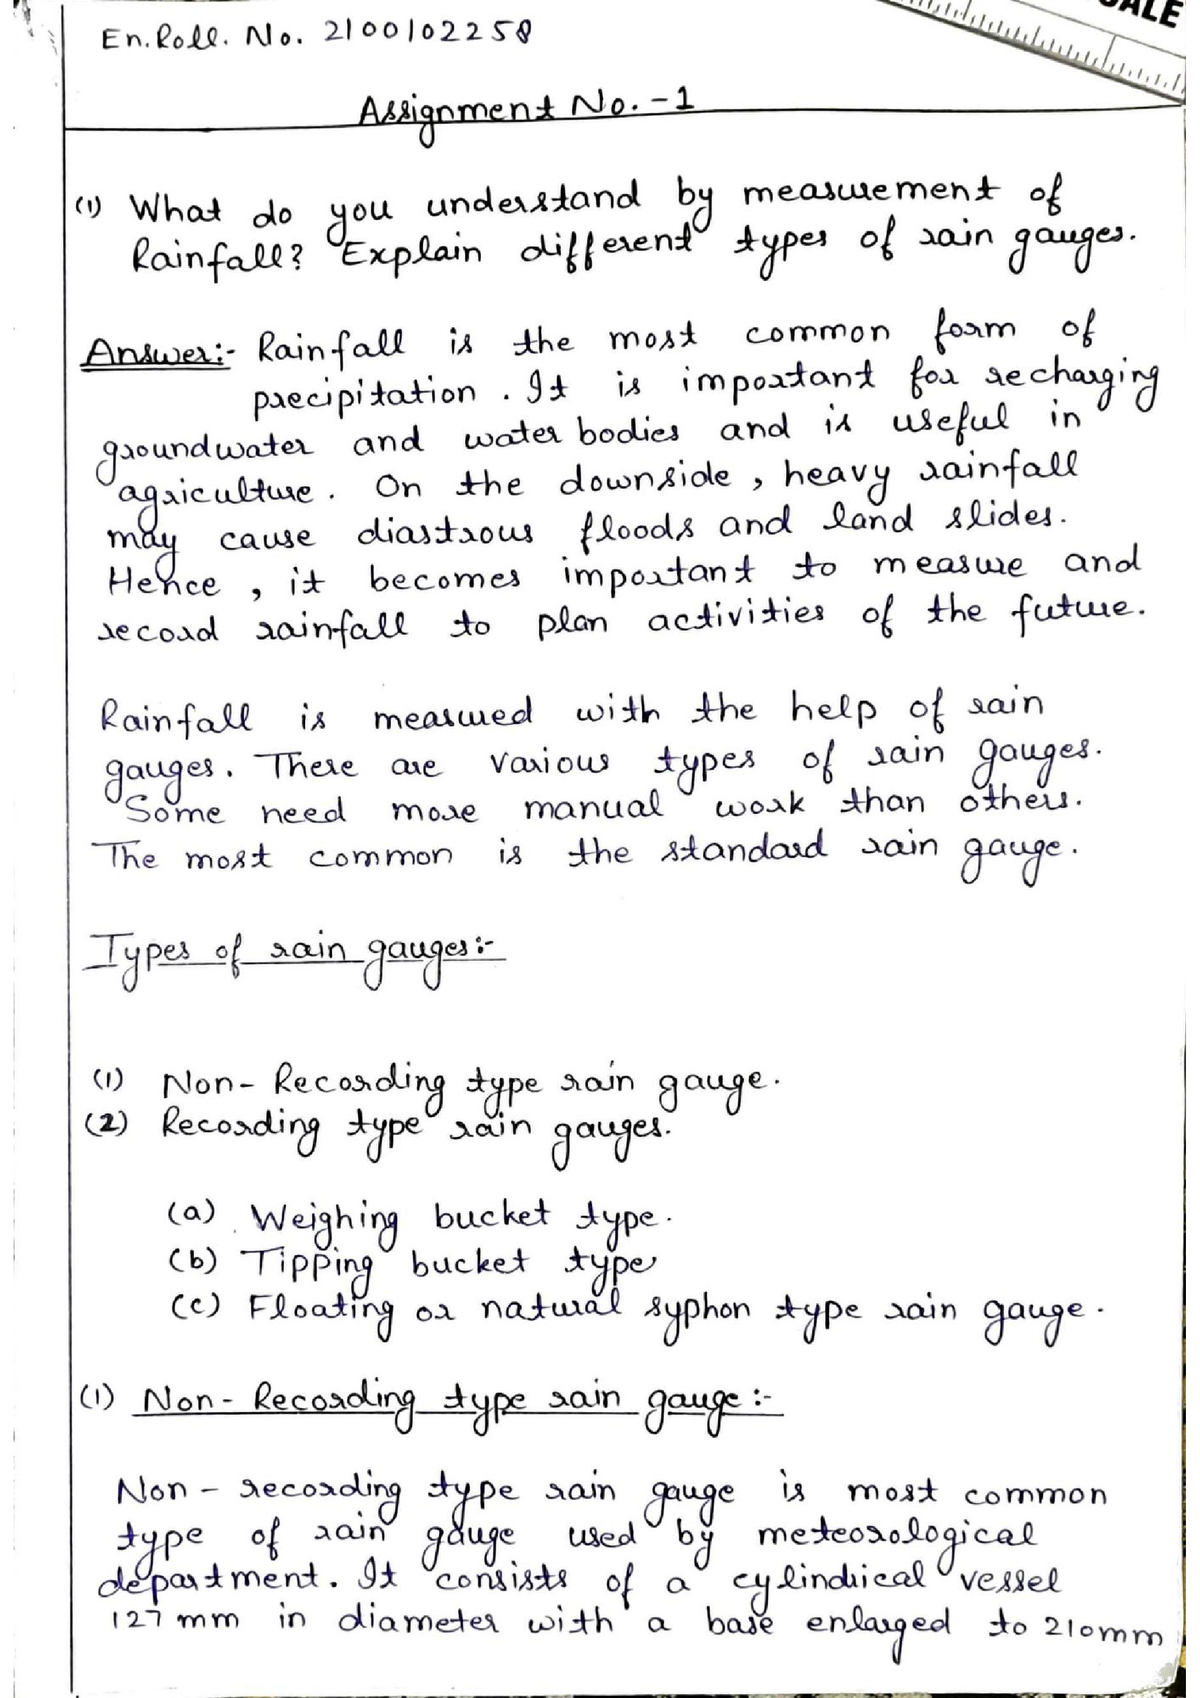 En. Roll. No. 2100102258
Assignment No. -1
(1) What do you understand by measurement of
Rainfall? Explain different types of rain gauges.
Answer:- Rainfall is the most common form of
precipitation. It is important for recharging
groundwater and water bodies and is useful in
agriculture. On the downside, heavy rainfall
may cause diastrous floods and land slides.
Hence, it becomes important to measure and
record rainfall to plan activities of the future.
Rainfall is measured with the help of rain
gauges. There are various types of rain gauges.
Some need more manual work than others.
The most common is the standard rain gauge.
Types of rain gauges:-
(1) Non-Recording type rain gauge.
(2) Recording type rain gauges.
(a) Weighing bucket type.
(b) Tipping bucket type
(c) Floating or natural syphon type rain gauge.
(1) Non-Recording type rain gauge:-
Non-recording type rain gauge is most common
type of rain gauge used by meteorological
department. It consists of a cylindrical vessel
127 mm in diameter with a base enlarged to 210mm